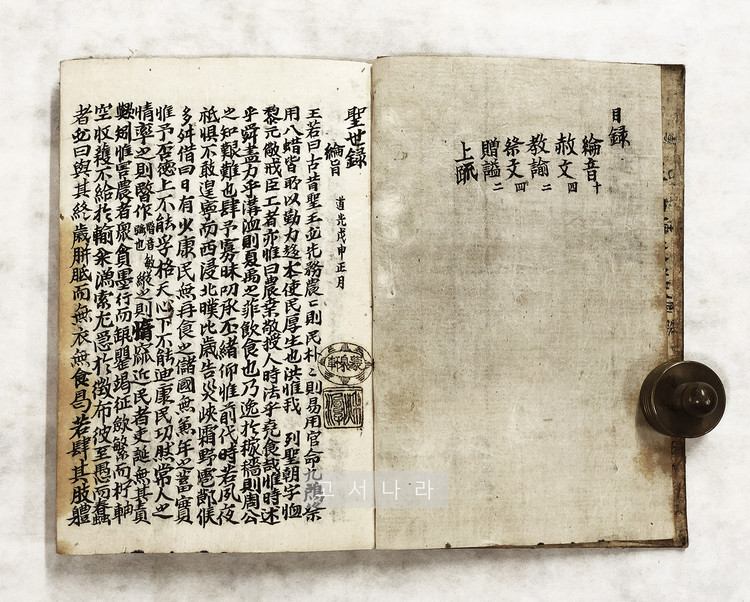 目錄
綸音十
赦文四
教諭二
祭文四
贈諡二
上號
聖世錄
綸旨 道光戊申正月
王若曰古昔聖王必先務農〻則民朴〻則易用官命九鳸祭
用八蜡皆所以勤力務本使民厚生也洪惟我 列聖朝字恤
黎元儆戒臣工者亦惟曰農業敬授人時法乎堯食哉惟時述
乎舜盡力乎溝洫則夏禹之菲飮食也乃逸於稼穡則周公
之知艱難也肆予寡昧叨承丕緖仰惟前代時若夙夜
祗懼不敢遑寧而西浸北暵比歲告災峽霜野雹候
多舛借曰日有少康民無再食之儲國無兼年之蓄實
惟予否德上不能孚格天心下不能迪康民功朕常人之
情率之則啓作 縱之則惰窳近民者誕無其責
矧惟害農者衆貪墨行而缾罌竭征斂繁而杼軸
空收穫不給於輸糴漁索尤急於徵布彼至愚而蠢
者必曰與其終歲胼胝而無衣無食曷若肆其肢軆
고서나라